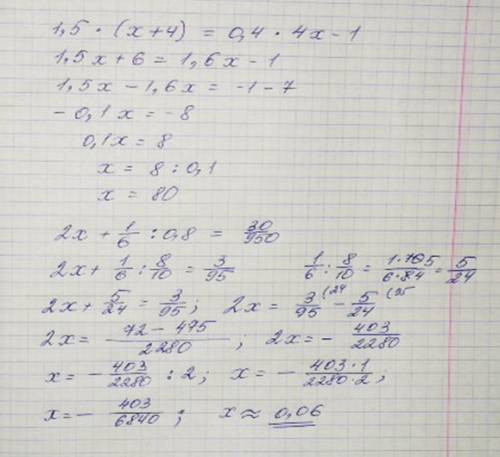 1,5 · (x+4) = 0,4 · 4x-1
1,5x + 6 = 1,6x - 1
1,5x - 1,6x = -1 - 7
- 0,1x = -8
0,1x = 8
x = 8 : 0,1
x = 80
2x + 1/6 : 0,8 = 30/950
2x + 1/6 : 8/10 = 3/95    1/6 : 8/10 = 1·105/6·84 = 5/24
2x + 5/24 = 3/95 ; 2x = 3/95 (24 - 5/24 (95
2x = 72 - 475/2280 ; 2x = - 403/2280
x = - 403/2280 : 2 ; x = - 403·1/2280·2 ;
x = - 403/6840 ; x ≈ 0,06